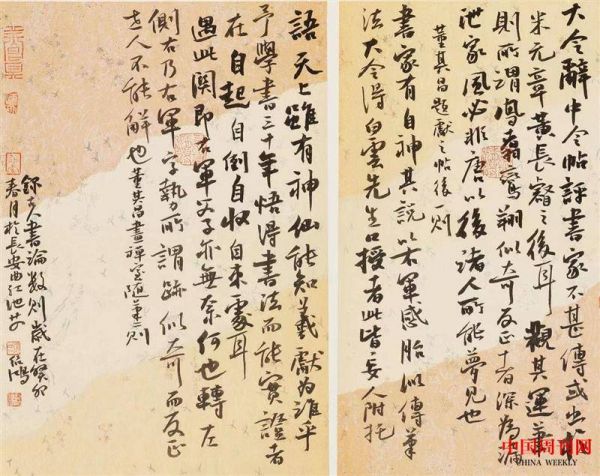 大令辭中令帖評書家不甚傳或出
米元章黃長睿之後耳觀其運筆
則所謂鳳翥鸞翔似奇反正者深為漏
泄家風必非唐以後諸人所能夢見也
董其昌題獻之帖後一則
書家有自神其說以右軍感胎仙傳筆
法大令得白雲先生口授者此皆妄人附托
語天上雖有神仙能知羲獻為誰乎
予學書三十年悟得書法而能實證者
在自起自倒自收自束處耳
過此關即右軍父子亦無奈何也轉左
側右乃右軍字勢所謂跡似奇而反正
世人不能解也 董其昌畫禪室隨筆二則
錄古人書論數則歲在癸卯
春月於長安曲江池
中国周刊网
CHINA WEEKLY